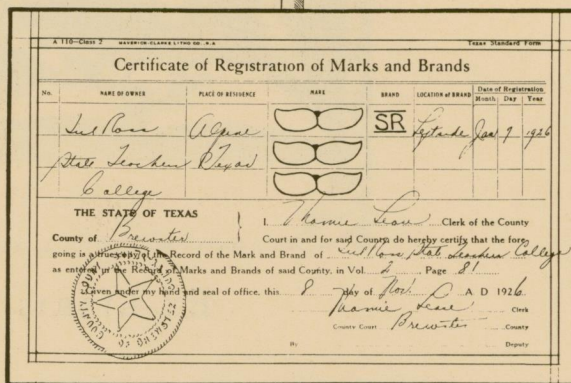 A 110—Class 2 MAVERICK-CLARKE LITHO CO., S.A. Texas Standard Form
Certificate of Registration of Marks and Brands
No. NAME OF OWNER PLACE OF RESIDENCE MARK BRAND LOCATION of BRAND Date of Registration
Month Day Year
Sul Ross Alpine SR Left side Jan 9 1926
State Teachers Texas
College
THE STATE OF TEXAS
County of Brewster
I, Clerk of the County
Court in and for said County do hereby certify that the fore-
going is a true copy of the Record of the Mark and Brand of Sul Ross State Teachers College
as entered in the Record of Marks and Brands of said County, in Vol. 2 Page 81
Given under my hand and seal of office, this 8 day of Nov. A D 1926
Clerk
County Court Brewster County
By Deputy